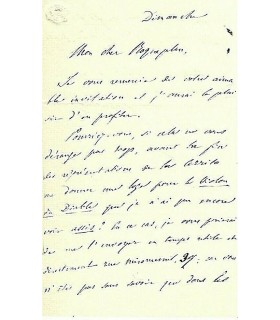 Dimanche
Mon cher Roqueplan,
Je vous remercie de votre aima-
ble invitation et j'aurai le plai-
sir d'en profiter.
Pourriez-vous, si cela ne vous
dérange pas trop, avant la fin
des représentations de la Cerrito
me donner une loge pour le Violon
du Diable que je n'ai pu encore
voir assis? En ce cas, je vous prierai
de me l'envoyer en temps utile et
directement rue Miromesnil, 39; car vous
n'êtes pas sans savoir que dans les